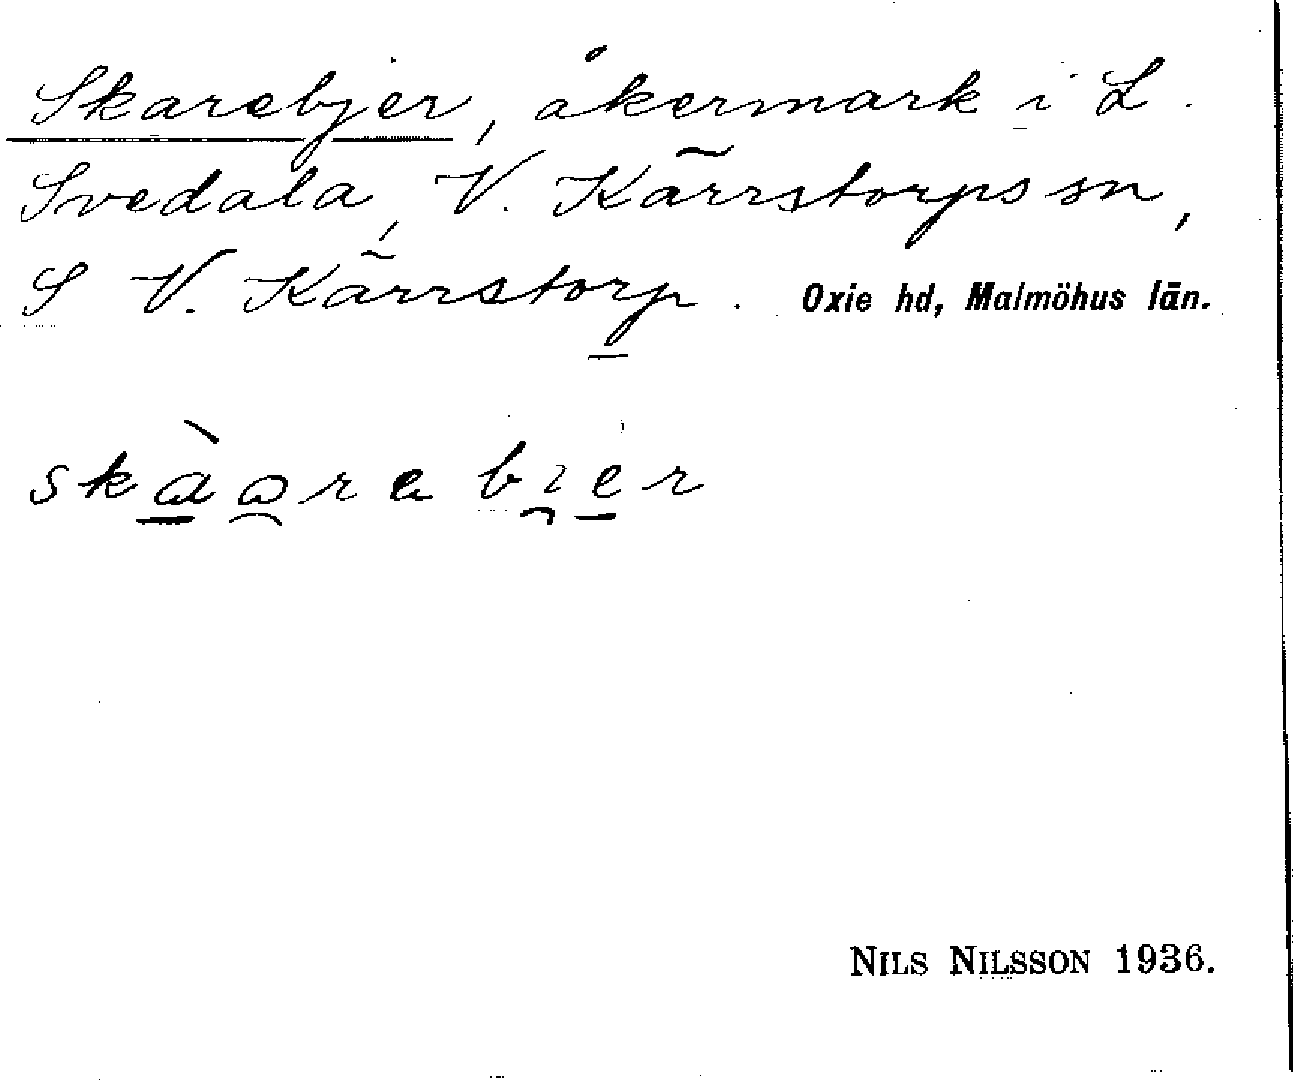 Skarebjer, åkermark i L.
Svedala, V. Kärrstorps sn,
S V. Kärrstorp. Oxie hd, Malmöhus län.
NILS NILSSON 1936.